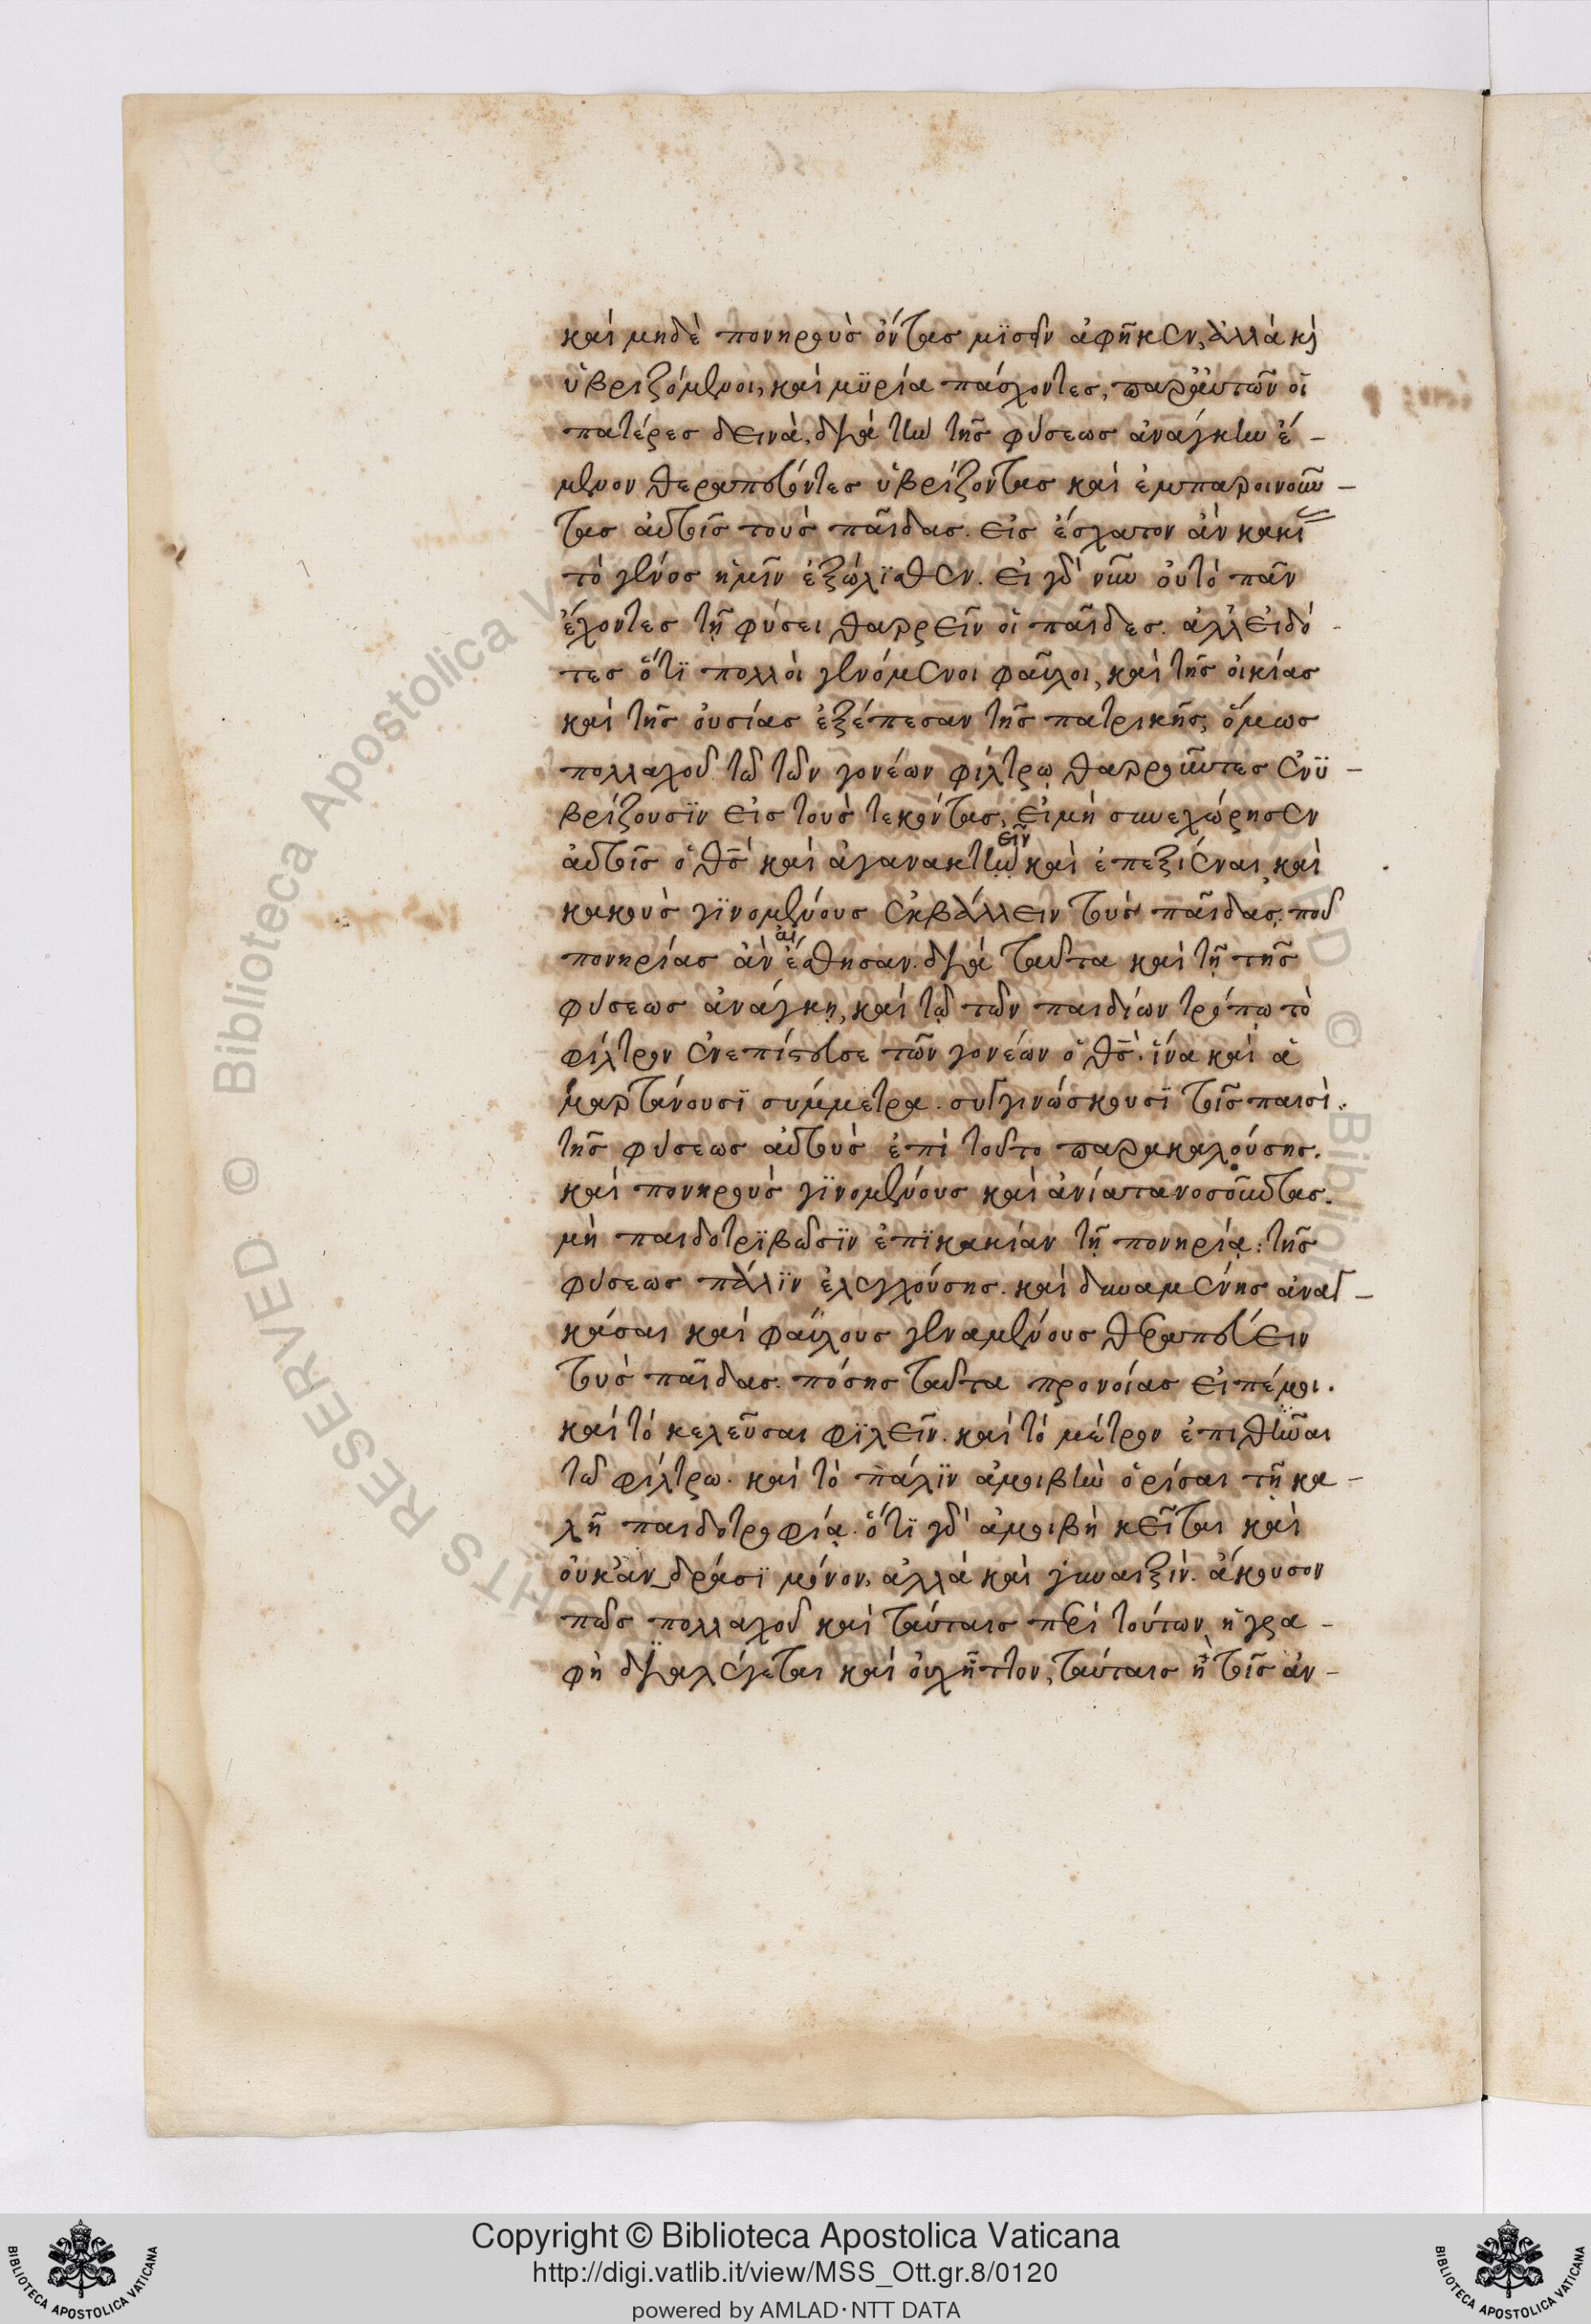 καὶ μηδὲ πονηροὺς ὄντας μϊσεῖν ἀφῆκεν, ἀλλὰ κ̀
ὑβριζόμενοι, καὶ μϋρία πάσχοντες, παρ' αὐτῶν οἱ
πατέρες δεινὰ, διὰ τὴν τῆς φύσεως ἀνάγκην ἔ-
μενον θεραπεύοντες ὑβρίζοντας καὶ ἐμπαροινοῦν-
τας αὐτοῖς τοὺς παῖδας. εἰς ἔσχατον ἂν κακί
τὸ γένος ἡμῖν ἐξώλϊσθεν. εἰ γὰρ νῦν οὐ τὸ πᾶν
ἔχοντες τῇ φύσει θαρρεῖν οἱ παῖδες. ἀλλ' εἰδό-
τες ὅτϊ πολλοὶ γενόμενοι φαῦλοι, καὶ τῆς οἰκίας
καὶ τῆς οὐσίας ἐξέπεσαν τῆς πατρικῆς, ὅμως
πολλαχοῦ τῶ τῶν γονέων φίλτρῳ θαρροῦντες ἐνϋ-
βρίζουσϊν εἰς τοὺς τεκόντας, εἰ μὴ συνεχώρησεν
αὐτοῖς ὁ θς̄ καὶ ἀγανακτεῖν καὶ ἐπεξιέναι, καὶ
κακοὺς γϊνομένους ἐκβάλλειν τοὺς παῖδας, ποῦ
πονηρίας ἂν ἔστησαν. διὰ ταῦτα καὶ τῇ τῆς
φύσεως ἀνάγκῃ, καὶ τῷ τῶν παιδίων τρόπω τὸ
φίλτρον ἐνεπίστευσε τῶν γονέων ὁ θς̄. ἵνα καὶ ἁ
μαρτάνουσϊ σύμμετρα. συγγινώσκουσϊ τοῖς παισὶ.
τῆς φύσεως αὐτοὺς ἐπὶ τοῦτο παρακαλούσης.
καὶ πονηροὺς γϊνομένους καὶ ἀνίατα νοσοῦντας.
μὴ παιδοτρϊβῶσϊν ἐπϊ κακίαν τῇ πονηρίᾳ: τῆς
φύσεως πάλϊν ἐλεγχούσης. καὶ δυναμένης ἀναγ-
κάσαι καὶ φαύλους γεναμένους θεραπεύειν
τοὺς παῖδας. πόσης ταῦτα προνοίας εἰπέ μοι.
καὶ τὸ κελεῦσαι φϊλεῖν. καὶ τὸ μέτρον ἐπιθεῖναι
τῶ φίλτρω. καὶ τὸ πάλϊν ἀμοιβὴν ὁρίσαι τῇ κα-
λῇ παιδοτροφίᾳ. ὅτϊ γὰρ ἀμοιβὴ κεῖται καὶ
οὐκ ἀνδράσϊ μόνον, ἀλλὰ καὶ γυναιξὶν. ἄκουσον
πῶς πολλαχοῦ καὶ ταύταις περὶ τούτων ἡ γρα-
φὴ διαλέγεται καὶ οὐχ ἧττον, ταύταις ἢ τοῖς ἀν-
Copyright © Biblioteca Apostolica Vaticana
http://digi.vatlib.it/view/MSS_Ott.gr.8/0120
powered by AMLAD·NTT DATA